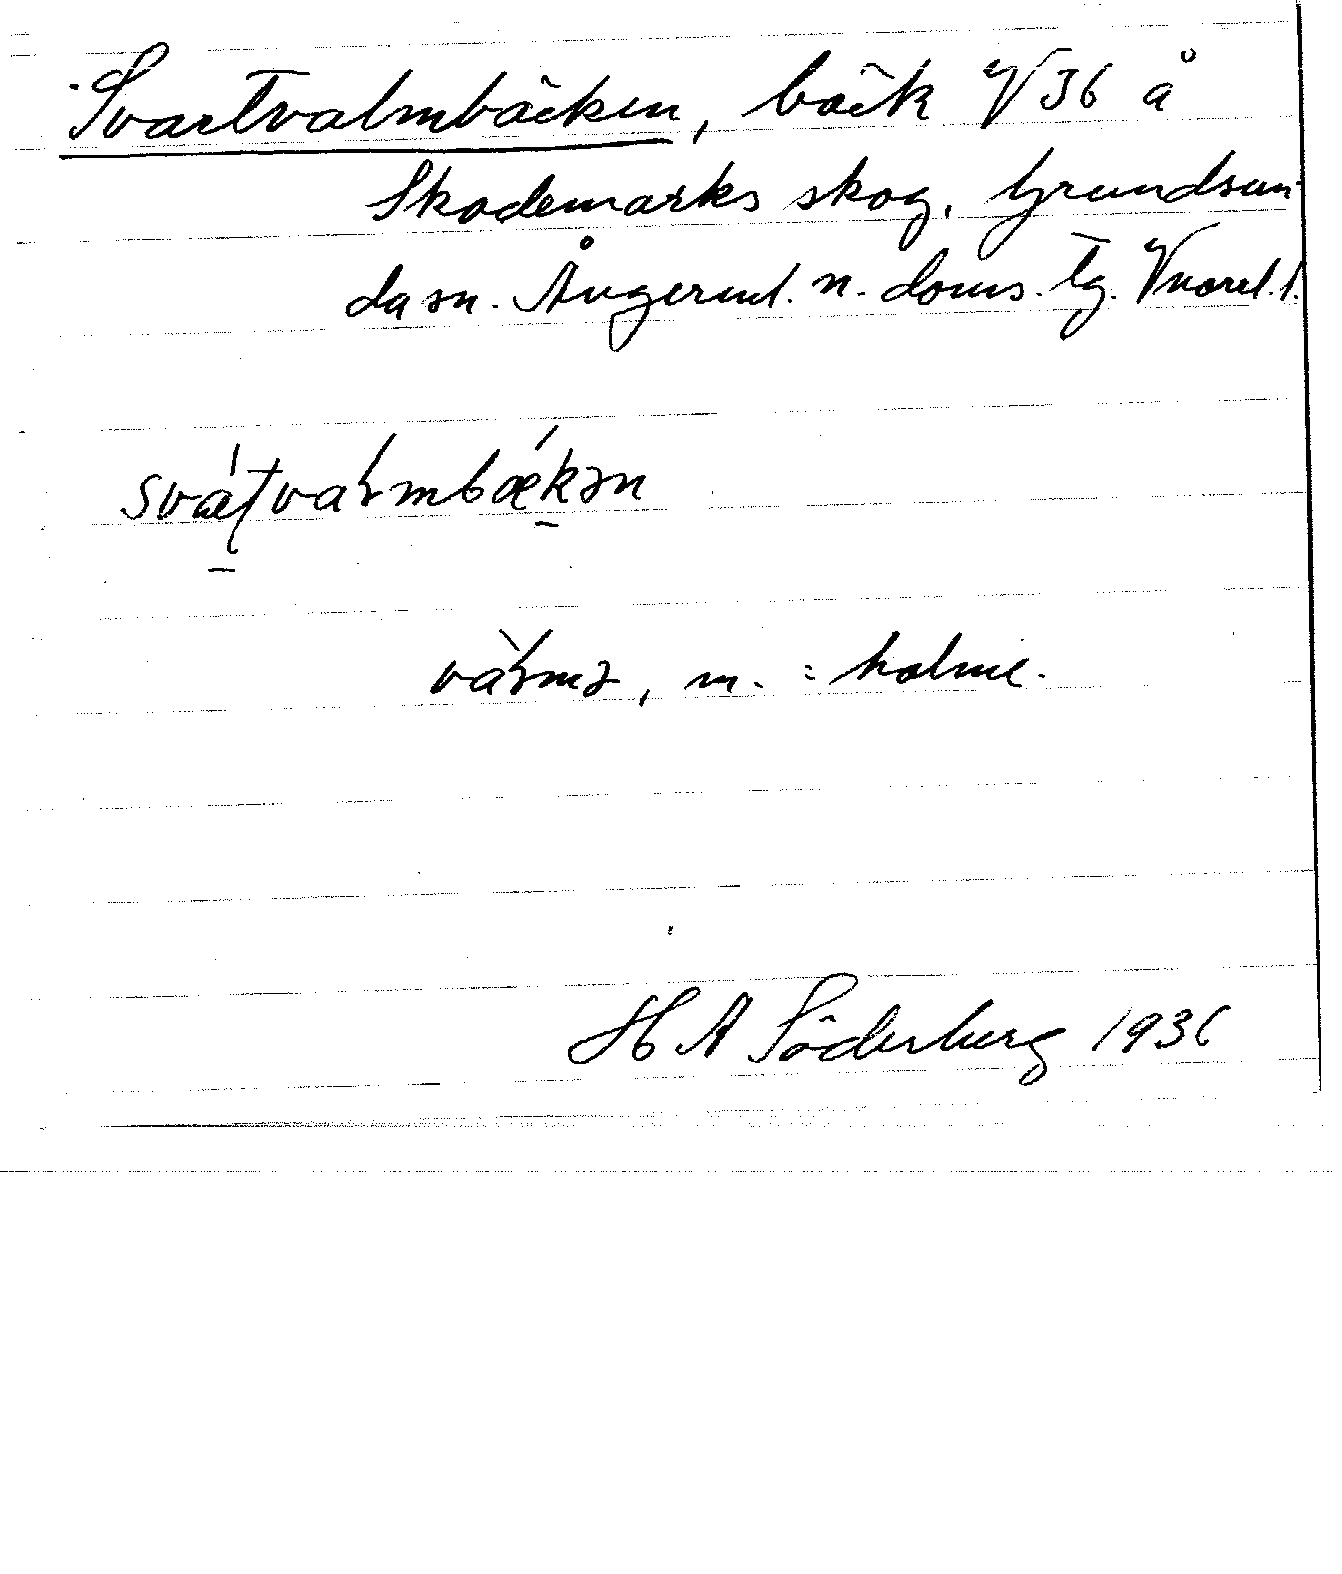 Svartvalmbäcken, bäck V 36 å
Skademarks skog, Grundsun-
da sn. Ångerml. n. doms. tg. Vnorrl. l.
svárt̨vaɽmbǽkən
vàɽmə, m. = halme.
H A Söderberg 1936